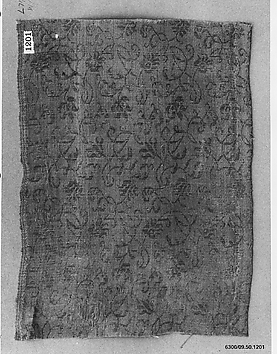 1201
6300/09.50.1201